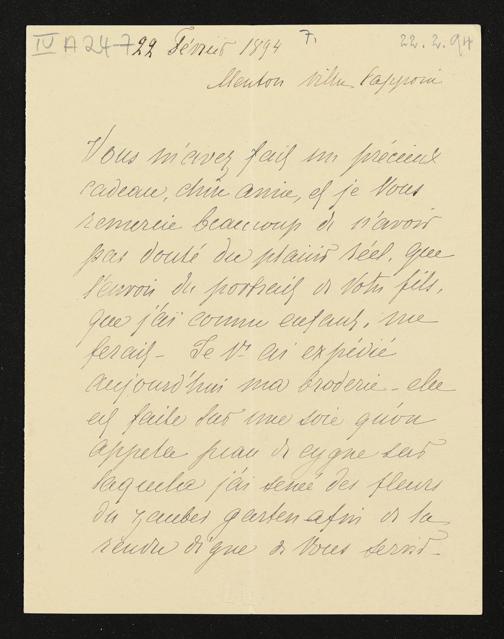 IV A 24-7 22 Février 1894 7. 22.2.94
Menton Villa
Vous m'avez fait un précieux
cadeau, chère amie, et je Vous
remercie beaucoup de n'avoir
pas douté du plaisir réel, que
l'envoi du portrait de Votre fils,
que j'ai connu enfant, me
ferait - Je Vs ai expédié
aujourd'hui ma broderie - elle
est faite sur une soie qu'on
appelle peau de cygne sur
laquelle j'ai semé des fleurs
du zauber garten afin de la
rendre digne de Vous servir -